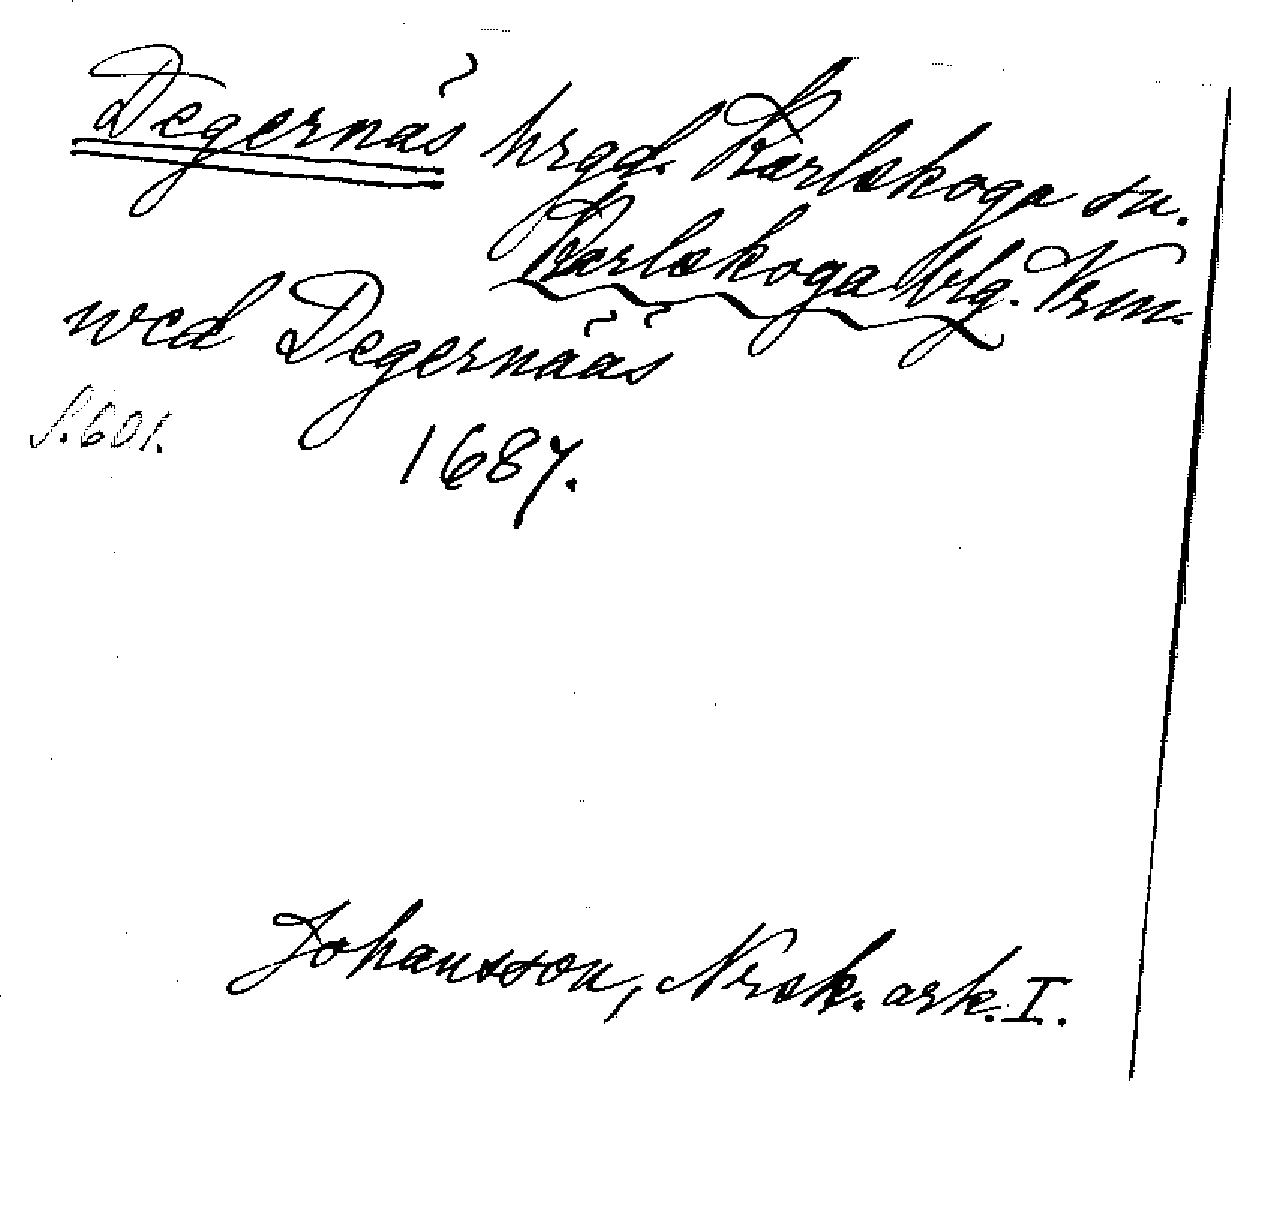 Degernäs hrgd. Karlskoga sn.
Karlskoga blg. Vrm.
wed Degernääs
S. 601.
1687.
Johansson, Nrsk. ark. I.